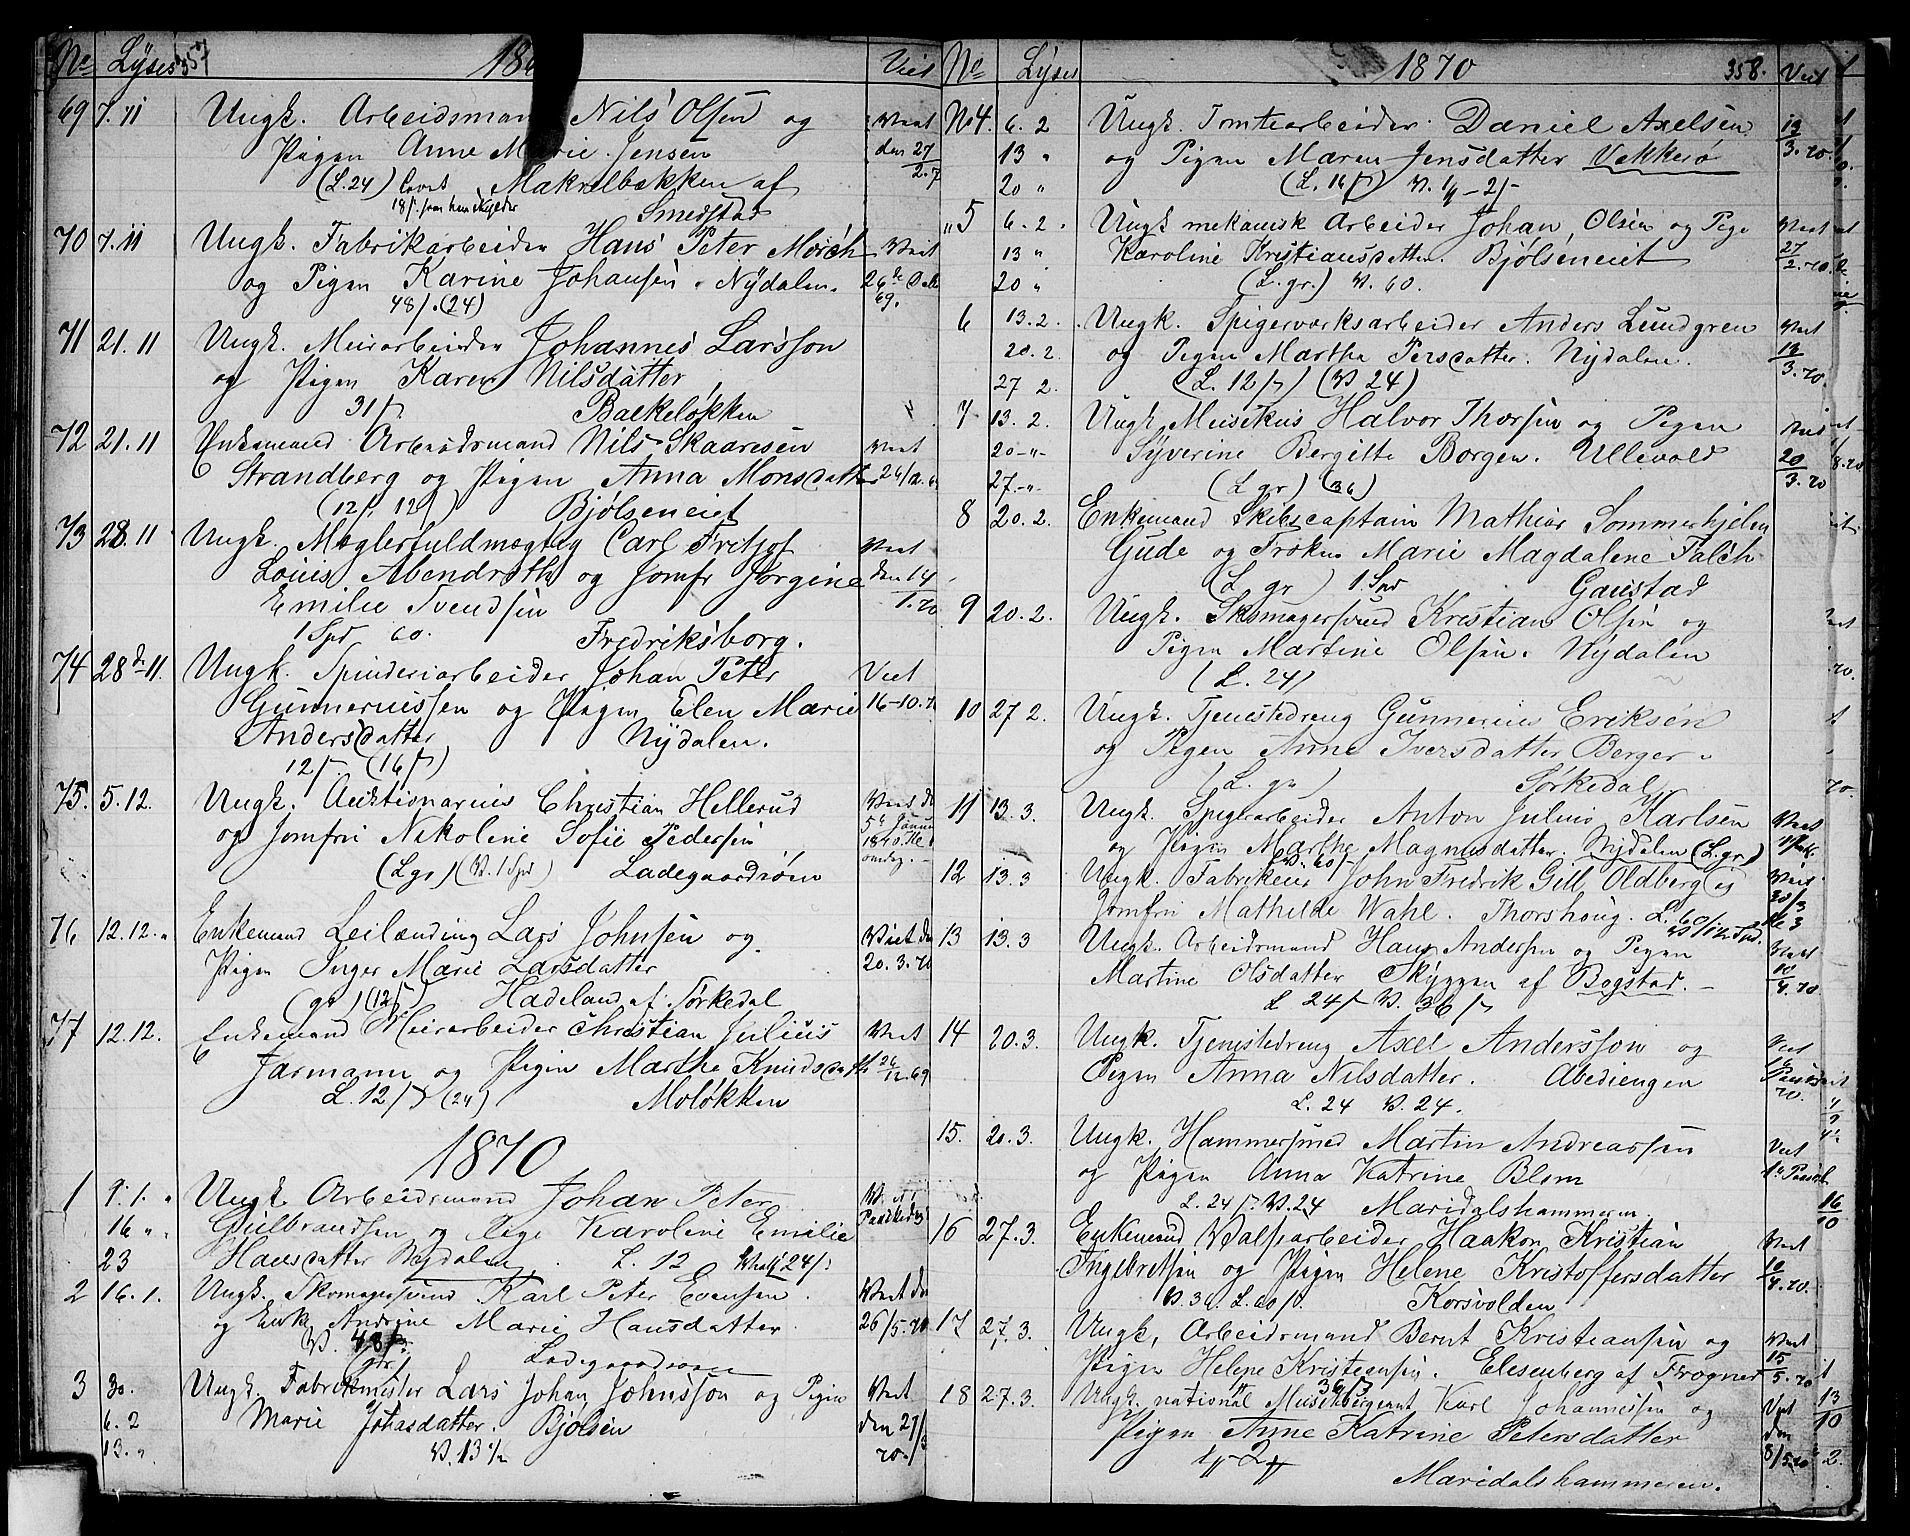 No Lyses 357 18 Viet
69 7.11 Ungk. Arbeidsmand Nils Olsen og Viet
Pigen Anne Marie Jensen den 27
(L.24) Makrelbækken af 2.7
18/. som han skylder
Smedstad
70 7.11 Ungk. Fabrikarbeider Hans Peter Mørch Viet
og Pigen Karine Johansen. Nydalen. 26de Dec
48/. (24) 69.
71 21.11 Ungk. Meiearbeider Johannes Larsson
og Pigen Karen Nilsdatter
31/. Bakkeløkken
72 21.11 Enkemand Arbeidsmand Nils Skaaresen Viet
Strandberg og Pigen Anna Monsdatter
(12/. 12/) Bjølseneiet
73 28.11 Ungk. Meglerfuldmægtig Carl Fritjof Viet
Louis Abendroth og Jomfr Jørgine den 14
Emilie Svendsen 1.70
1 Spd 60. Fredriksborg.
74 28de 11. Ungk. Spinderiarbeider Johan Peter Viet
Gunneriussen og Pigen Elen Marie 16-10.70
Andersdatter Nydalen.
12/ (16/)
75. 5.12. Ungk. Auktionarius Christian Hellerud Viet d.
og Jomfru Nikoline Sofie Pedersen 5te Januar
(L gr) (V. 1 Spd) Ladegaardsøen
76 12.12. Enkemand Leilænding Lars Johnsen og Viet den
Pigen Inger Marie Larsdatter 20.3.70
(gr) (12/) Hadeland af Sørkedal
77 12.12. Enkemand Meiearbeider Christian Julius Viet
Jarmann og Pigen Marthe Knudsdatter 26/12.69
L. 12/ (24) Moløkken
1870
1 9.1. Ungk. Arbeidsmand Johan Peter
16 " Gulbrandsen og Pige Karoline Emilie
23 Hansdatter Nydalen. L. 12 24/
2 16.1. Ungk. Skomagersvend Karl Peter Evensen. Viet den
og Enke Andrine Marie Hansdatter. 26/5.70
V. 48/.
(gr) Ladegaardsøen
3 30. Ungk. Fabrikmester Lars Johan Johnsson og Pigen Viet
6.2 Marie Johasdatter. Bjølsen den 27/3
13. " V. 13 70.
No Lyses 1870 358. Viet
No 4. 6.2 Ungk. Tomtearbeider Daniel Axelsen 13
13 " og Pigen Maren Jensdatter Vekkerø 3.70.
20 " (L. 16/)
"5 6.2. Ungk mekanisk Arbeider Johan Olsen og Pige Viet
13 " Karoline Kristiansdatter. Bjølseneiet 27
20 " (L. gr.) V. 60. 2.70.
6 13.2. Ungk. Spigerværksarbeider Anders Lundgren Viet
20.2. og Pigen Marthe Persdatter. Nydalen. 13
27 2. (L. 12/) (V 24) 3.70
7 13.2. Ungk. Musikus Halvor Thorsen og Pigen Viet
20-"- Syverine Bergitte Borgen. Ullevold 20
27.-"- (L gr) (36) 3.70
8 20.2. Enkemand Skibscaptain Mathias Sommerhjelm
Gude og Frøken Marie Magdalene Falch
(L. gr) 1 Spd Gaustad
9 20.2. Ungk. Skomagersvend Kristian Olsen og
Pigen Martine Olsen. Nydalen
(L. 24)
10 27 2. Ungk. Tjenestedreng Gunnerius Eriksen
og Pigen Anne Iversdatter Berger.
(L. gr) Sørkedal
11 13.3. Ungk. Spigerarbeider Anton Julius Karlsen Viet
og Pigen Marthe Magnusdatter. Nydalen (L. gr)
V. 60/
12 13.3 Ungk. Fabrikeier John Fredrik Gill Oldberg og Viet
Jomfru Mathilde Wahl. Thorshoug. L. 60/
13 13.3 Ungk. Arbeidsmand Hans Andersen og Pigen Viet
Martine Olsdatter Skyggen af Bogstad. 10
L 24/ V. 36/ 4.70
14 20.3. Ungk. Tjenestedreng Axel Andersson og Viet
Pigen Anna Nilsdatter. Abediengen
L. 24 V. 24. 70.
15. 20.3. Ungk. Hammersmed Martin Andreassen Viet
og Pigen Anna Katrine Blom
L. 24/. V. 24 Maridalshammeren.
16 27.3. Enkemand Valsearbeider Haakon Kristian Viet
Ingebretsen og Pigen Helene Kristoffersdatter 10
V. 36. L. 60/. Korsvolden 4.70.
17 27.3. Ungk. Arbeidsmand Bernt Kristiansen og Viet
Pigen Helene Kristiansen. Elesenberg af Frogner 15
36/ 5.70
18 27.3. Ungk. national Musikbergeant Karl Johannessen og Viet
Pigen Anne Katrine Petersdatter den
8/5.70
Maridalshammeren.